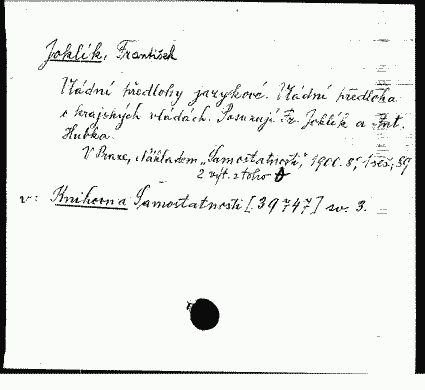 Joklík, František
Vládní předlohy jazykové. Vládní předloha
o krajských vládách. Posuzují Fr. Joklík a Ant.
Hubka.
V Praze, Nákladem „Samostatnosti“, 1900. 8°, 1 seš., 59
2 výt. z toho
v: Knihovna Samostatnosti [39747] sv. 3.